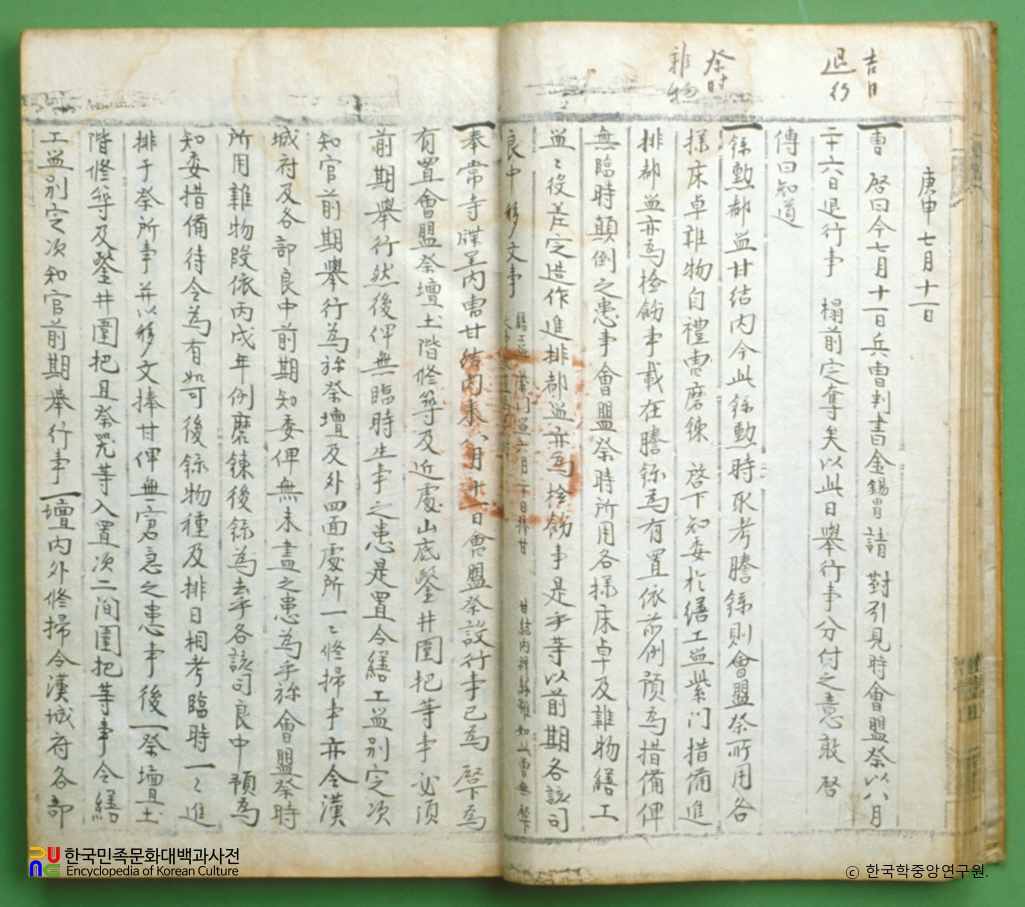 吉日
退行
祭時
雜物
庚申七月十一日
一曹 啓曰今七月十一日兵曹判書金錫冑請 對引見時會盟祭以八月
二十六日退行事 榻前定奪矣以此日擧行事分付之意敢 啓
傳曰知道
一錄勳都監甘結內今此錄勳時取考謄錄則會盟祭所用各
樣床卓雜物自禮曹磨鍊 啓下知委於繕工監紫門措備進
排都監亦爲檢飭事載在謄錄爲有置依前例預爲措備俾
無臨時顚倒之患事會盟祭時所用各樣床卓及雜物繕工
監〻役差定造作進排都監亦爲檢飭事是乎等以前期各該司
良中移文事
甘結內辭緣
一奉常寺牒呈內曹甘結內來八月十一日會盟祭設行事已爲 啓下爲
有置會盟祭壇土階修築及近處山底鑿井圍把等事必須
前期擧行然後俾無臨時生事之患是置令繕工監別定次
知官前期擧行爲旀祭壇及外四面處所一〻修掃事亦令漢
城府及各部良中前期知委俾無未盡之患爲乎旀會盟祭時
所用雜物段依丙戌年例磨鍊後錄爲去乎各該司良中預爲
知委措備待令爲有如可後錄物種及排日相考臨時一〻進
排于祭所事并以移文捧甘俾無窘急之患事後一祭壇土
階修築及鑿井圍把且祭器等入置次二間圍把等事令繕
工監別定次知官前期擧行事一壇內外修掃令漢城府各部
한국민족문화대백과사전
Encyclopedia of Korean Culture
© 한국학중앙연구원.